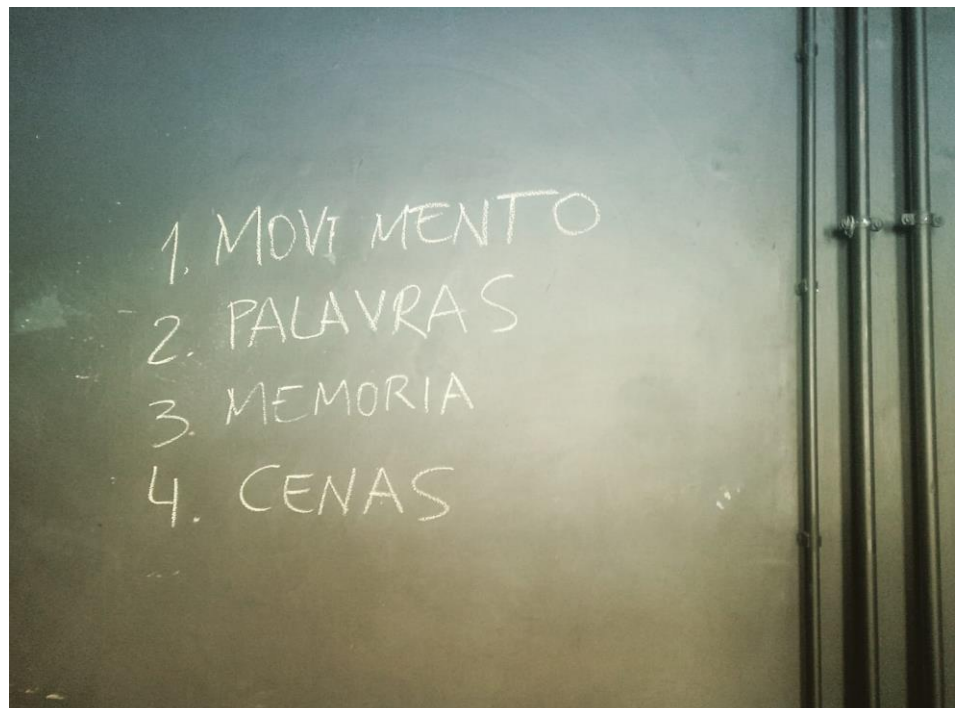 1. MOVIMENTO
2. PALAVRAS
3. MEMORIA
4. CENAS